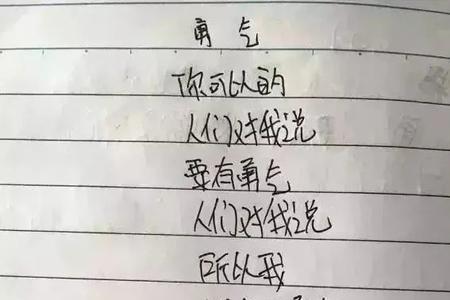 勇气
你可以的
人们对我说
要有勇气
人们对我说
所以我